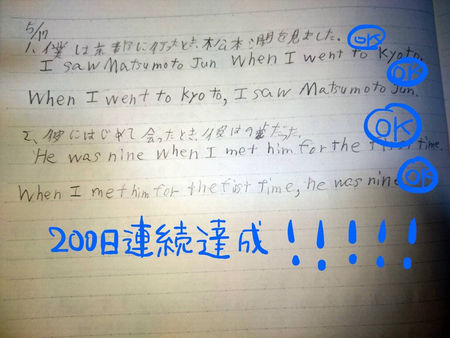 5/17
1、僕は京都に行ったとき、松本潤を見ました。 OK
I saw Matsumoto Jun when I went to Kyoto.
OK
When I went to Kyoto, I saw Matsumoto Jun.
2、彼にはじめて会ったとき、彼は9才だった。 OK
He was nine when I met him for the first time.
When I met him for the fist time, he was nine OK
200日連続達成!!!!!